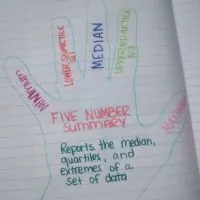 MINIMUM
LOWER QUARTILE
Q1
MEDIAN
UPPER QUARTILE
Q3
MAXIMUM
FIVE NUMBER
SUMMARY
Reports the median,
quartiles, and
extremes of a
set of data